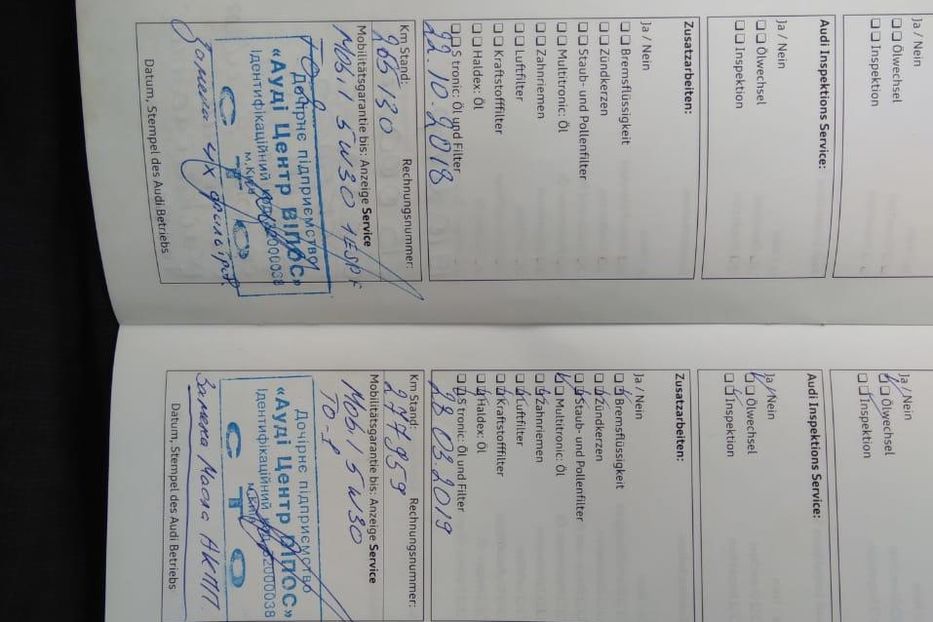 Ja / Nein
Ölwechsel
Inspektion
Audi Inspektions Service:
Ja / Nein
Ölwechsel
Inspektion
Zusatzarbeiten:
Ja / Nein
Bremsflüssigkeit
Zündkerzen
Staub- und Pollenfilter
Multitronic: Öl
Zahnriemen
Luftfilter
Kraftstofffilter
Haldex: Öl
S tronic: Öl und Filter
22.10.2018
Km Stand: Rechnungsnummer:
265130
Mobilitätsgarantie bis: Anzeige Service
Mobil 5W30 1ESP F
ТО
Дочірнє підприємство
«Ауді Центр Віпос»
Ідентифікаційний 32000038
м.Київ
С Т О
Замена
Datum, Stempel des Audi Betriebs
Ja / Nein
Ölwechsel
Inspektion
Audi Inspektions Service:
Ja / Nein
Ölwechsel
Inspektion
Zusatzarbeiten:
Ja / Nein
Bremsflüssigkeit
Zündkerzen
Staub- und Pollenfilter
Multitronic: Öl
Zahnriemen
Luftfilter
Kraftstofffilter
Haldex: Öl
S tronic: Öl und Filter
28 03 2019
Km Stand: Rechnungsnummer:
277959
Mobilitätsgarantie bis: Anzeige Service
Mobil 5W30
ТО-1
Дочірнє підприємство
«Ауді Центр Віпос»
Ідентифікаційний 32000038
м.Київ
С Т О
Замена Масла АКПП.
Datum, Stempel des Audi Betriebs